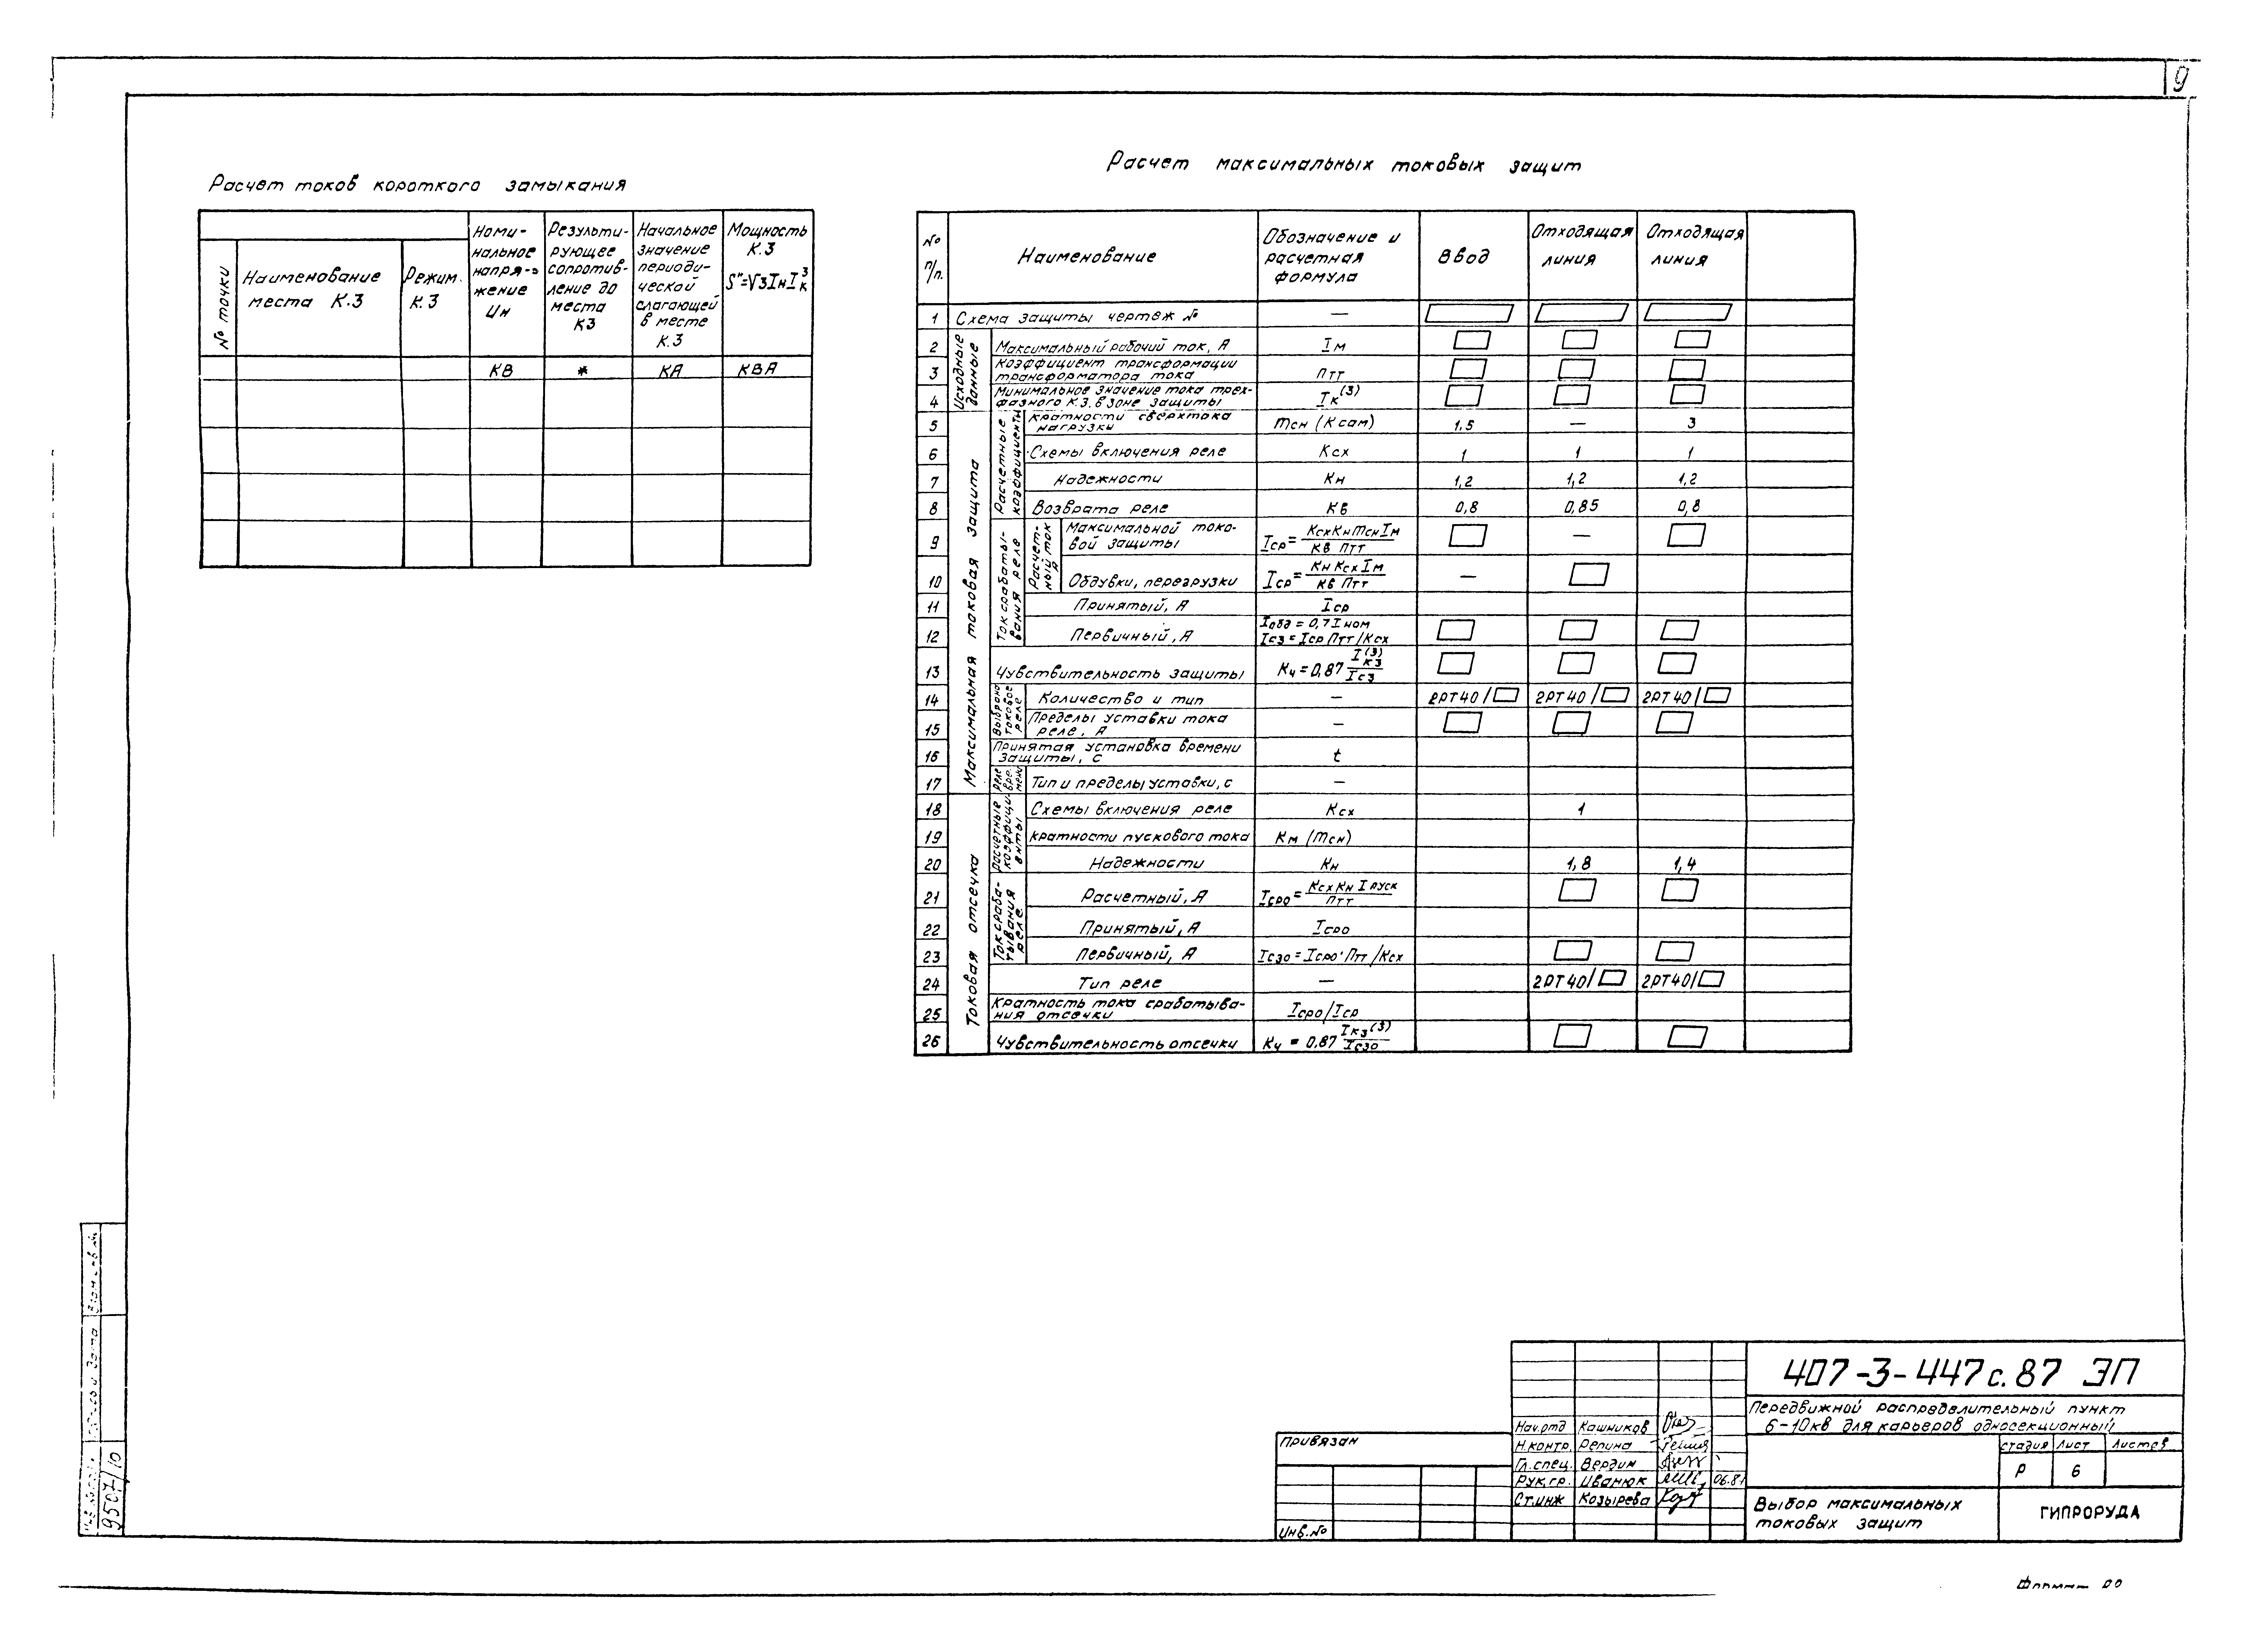 9
Расчет токов короткого замыкания
№ точки
Наименование места К.З
Режим. К.З
Номинальное напряжение Uн
Результирующее сопротивление до места КЗ
Начальное значение периодической слагающей в месте К.З
Мощность К.З S"=√3IнIк³
КВ * КА КВА
Расчет максимальных токовых защит
№ п/п. Наименование Обозначение и расчетная формула Ввод Отходящая линия Отходящая линия
1 Схема защиты чертеж № —
Исходные данные
2 Максимальный рабочий ток, А Iм
3 Коэффициент трансформации трансформатора тока nтт
4 Минимальное значение тока трехфазного К.З. в зоне защиты Iк(3)
Максимальная токовая защита
Расчетные коэффициенты
5 Кратности сверхтока нагрузки mсн (Kсам) 1,5 — 3
6 Схемы включения реле Kсх 1 1 1
7 Надежности Kн 1,2 1,2 1,2
8 Возврата реле Kв 0,8 0,85 0,8
Ток срабатывания реле
Расчетный ток А
9 Максимальной токовой защиты Iср= KсхKнmснIм / Kв nтт —
10 Обдувки, перегрузки Iср= Kн Kсх Iм / Kв nтт —
11 Принятый, А Iср
12 Первичный, А Iобд = 0,7 Iном Iсз = Iср nтт / Kсх
13 Чувствительность защиты Kч = 0,87 I(3)кз / Iсз
Выбрано токовое реле
14 Количество и тип — 2РТ40/ 2РТ40/ 2РТ40/
15 Пределы уставки тока реле, А —
16 Принятая установка времени защиты, с t
Реле времени
17 Тип и пределы уставки, с —
Токовая отсечка
Расчетные коэффициенты
18 Схемы включения реле Kсх 1
19 Кратности пускового тока Kм (mсн)
20 Надежности Kн 1,8 1,4
Ток срабатывания реле
21 Расчетный, А Iсро= Kсх Kн I пуск / nтт
22 Принятый, А Iсро
23 Первичный, А Iсзо = Iсро·nтт /Kсх
24 Тип реле — 2РТ40/ 2РТ40/
25 Кратность тока срабатывания отсечки Iсро/Iср
26 Чувствительность отсечки Kч = 0,87 Iкз(3) / Iсзо
407-3-447с.87 ЭП
Передвижной распределительный пункт
6-10кв для карьеров односекционный
Нач.отд Кашников
Н.контр. Репина
Гл.спец. Вердин
Рук.гр. Иванюк 06.87
Ст.инж Козырева
стадия Лист Листов
Р 6
Выбор максимальных токовых защит
ГИПРОРУДА
Привязан
Инв.№
9507/10
Формат